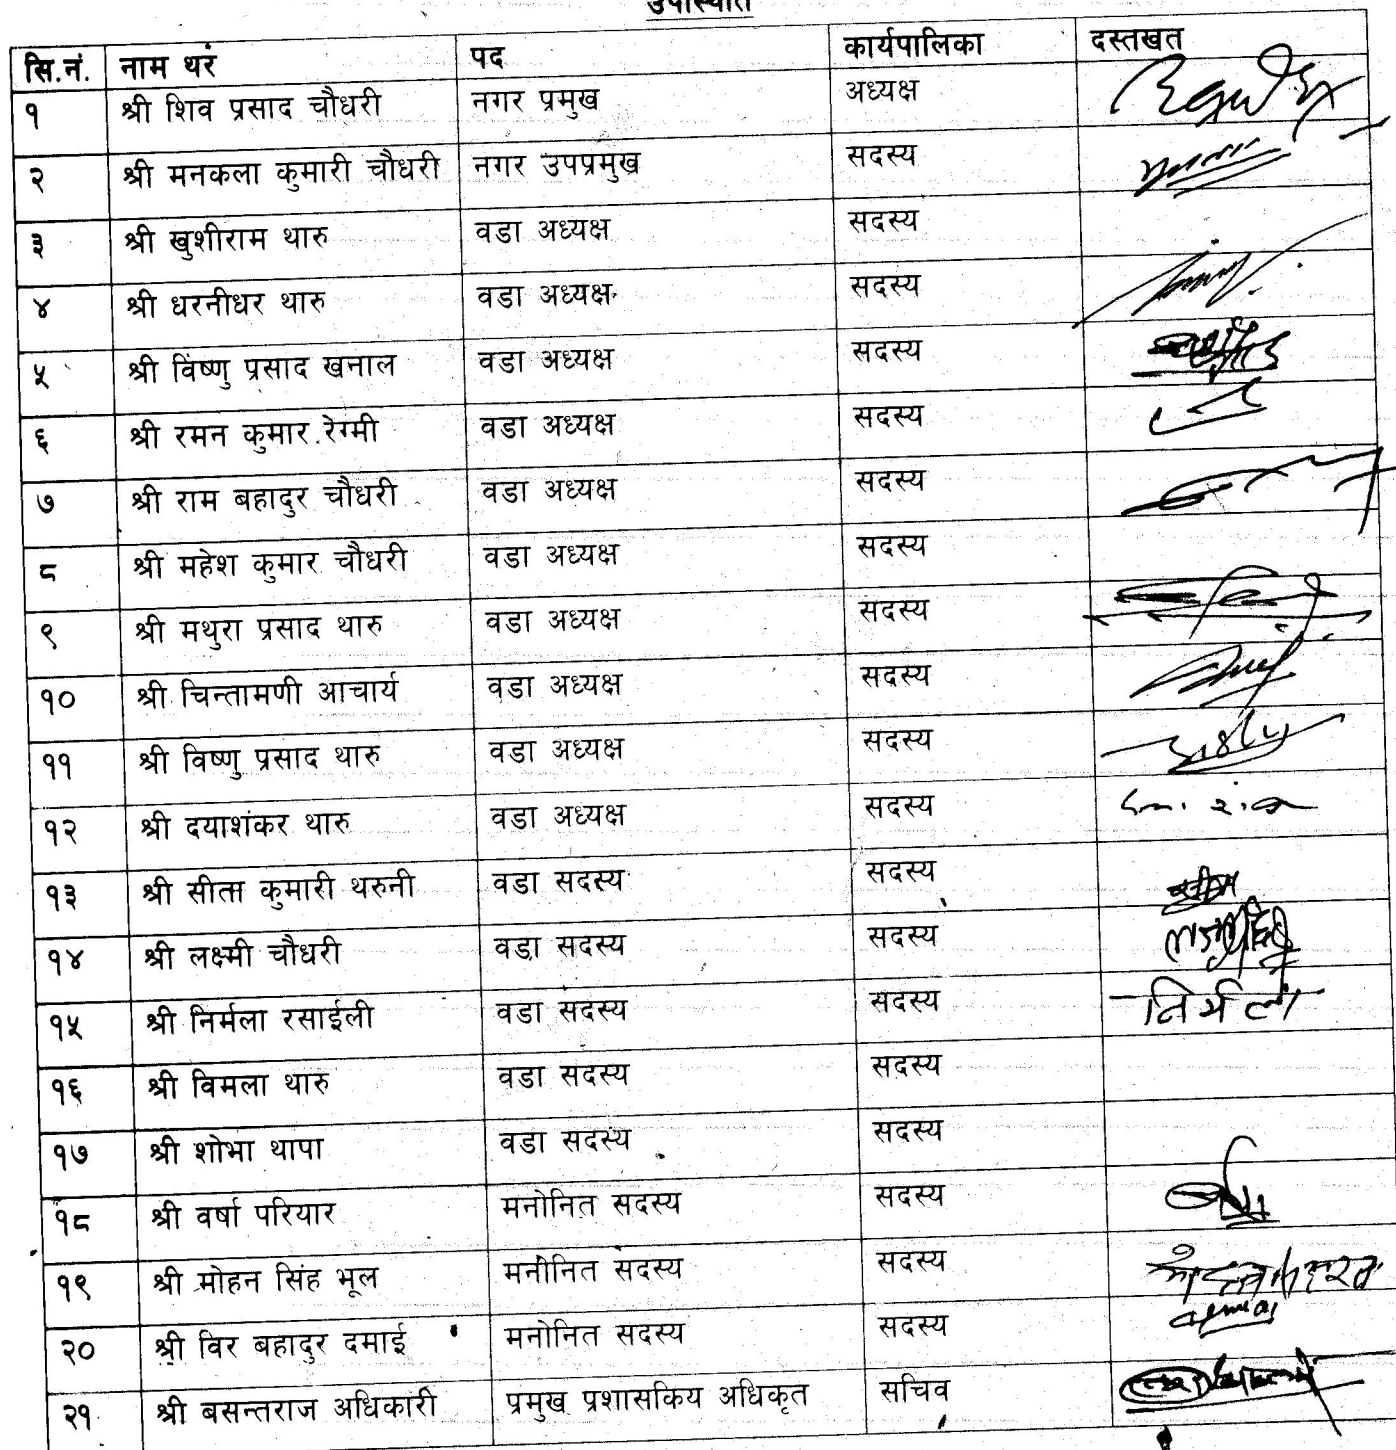 उपस्थिति
सि.नं. नाम थर पद कार्यपालिका दस्तखत
१ श्री शिव प्रसाद चौधरी नगर प्रमुख अध्यक्ष
२ श्री मनकला कुमारी चौधरी नगर उपप्रमुख सदस्य
३ श्री खुशीराम थारु वडा अध्यक्ष सदस्य
४ श्री धरनीधर थारु वडा अध्यक्ष सदस्य
५ श्री विष्णु प्रसाद खनाल वडा अध्यक्ष सदस्य
६ श्री रमन कुमार रेग्मी वडा अध्यक्ष सदस्य
७ श्री राम बहादुर चौधरी वडा अध्यक्ष सदस्य
८ श्री महेश कुमार चौधरी वडा अध्यक्ष सदस्य
९ श्री मथुरा प्रसाद थारु वडा अध्यक्ष सदस्य
१० श्री चिन्तामणी आचार्य वडा अध्यक्ष सदस्य
११ श्री विष्णु प्रसाद थारु वडा अध्यक्ष सदस्य
१२ श्री दयाशंकर थारु वडा अध्यक्ष सदस्य
१३ श्री सीता कुमारी थरुनी वडा सदस्य सदस्य
१४ श्री लक्ष्मी चौधरी वडा सदस्य सदस्य
१५ श्री निर्मला रसाईली वडा सदस्य सदस्य निर्मला
१६ श्री विमला थारु वडा सदस्य सदस्य
१७ श्री शोभा थापा वडा सदस्य सदस्य
१८ श्री वर्षा परियार मनोनित सदस्य सदस्य
१९ श्री मोहन सिंह भूल मनोनित सदस्य सदस्य
२० श्री विर बहादुर दमाई मनोनित सदस्य सदस्य
२१ श्री बसन्तराज अधिकारी प्रमुख प्रशासकिय अधिकृत सचिव